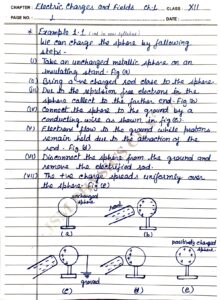 CHAPTER: Electric Charges and Fields Ch-1 CLASS XII
PAGE NO.: 1 DATE:
* Example 1.1
We can charge the sphere by following
steps -
(i) Take an uncharged metallic sphere on an
insulating stand. fig (a)
(ii) Bring a -ve charged rod close to the sphere.
(iii) Due to the repulsion free electrons in the
sphere collect to the farther end. fig (b)
(iv) Connect the sphere to the ground by a
conducting wire as shown in fig (c)
(v) Electrons flow to the ground while
remain held due to the attraction of the
rod. fig
(vi) Disconnect the sphere from the ground and
remove the electrified rod.
(vii) The +ve charge spreads uniformly over
the sphere fig (e)
uncharged
sphere
rod
(a)
(b)
positively charged
sphere
ground
(c)
(d)
(e)